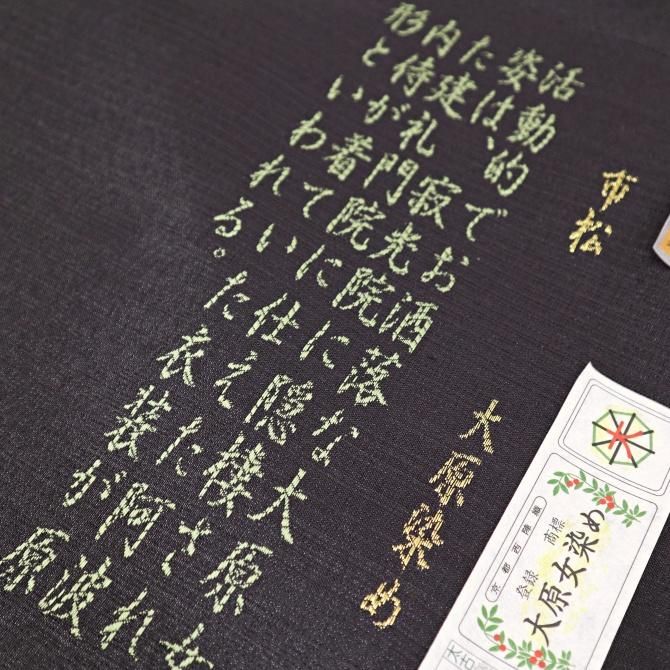 市松
大原染め
活動的でお洒落な大原女
姿は、寂光院に隠棲され
た建礼門院に仕えた阿波
内侍が着ていた衣装が原
形といわれる。
京都西陣織
登録商標
大原女染め